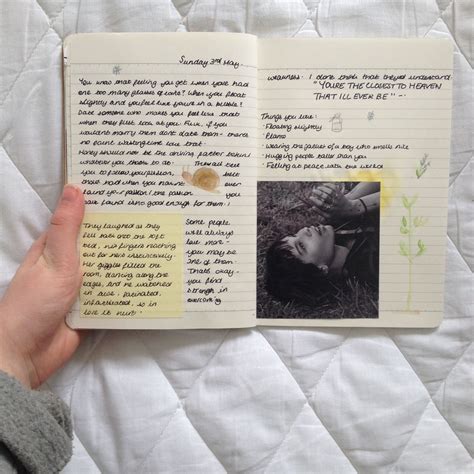 Sunday 3rd May.
You know that feeling you get when you've had
one too many glasses of wine? When you float
slightly and you feel like you're in a bubble?
Date someone who makes you feel like that
when they first look at you. Five, if you
wouldn't marry them don't date them - there's
no point wasting time like that.
Money should not be the driving factor behind
whatever you choose to do.
you to follow your passion,
chose and when you
found your passion
found who is good enough for them!
They laughed as they
fell back into the soft
bed, his fingers reaching
out for hers instinctively.
Her giggles filled the
room, dancing along the
edges, and he watched
in awe, fascinated,
infatuated, so in
love it hurt.
Some people
will always
love more -
you may be
one of them.
That's okay -
you find
strength in
everything
weakness - I don't think that they'd understand
"YOU'RE THE CLOSEST TO HEAVEN
THAT I'LL EVER BE" -
Things you like:
· Floating slightly
· Piano
· Wearing the clothes of a boy who smells nice
· Hugging people taller than you
· Feeling at peace with the world